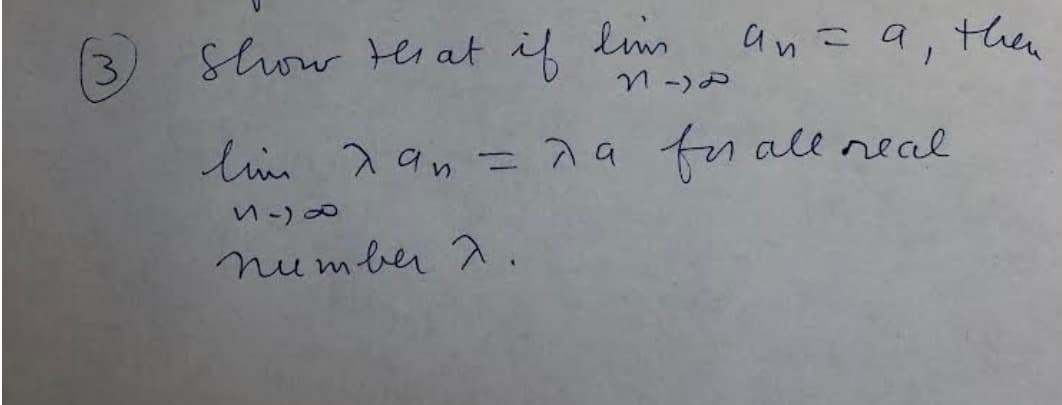 ③ Show that if lim aₙ = a, then
n→∞
lim λ aₙ = λa for all real
n→∞
number λ.